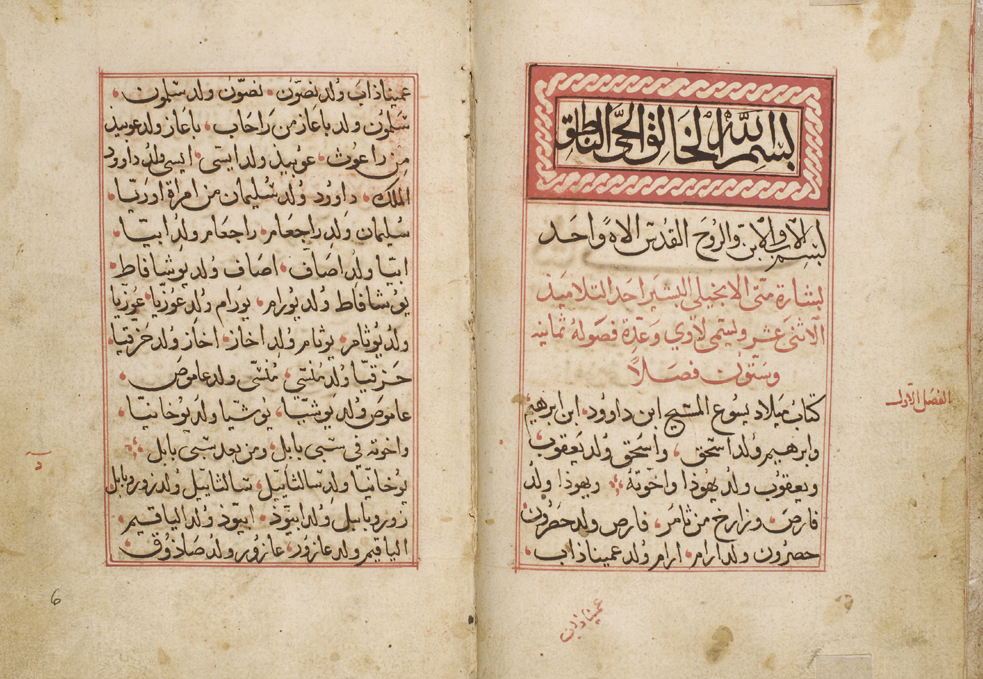 بسم الله الخالق الحي الناطق
بسم الاب والابن والروح القدس الاه واحد
بشارة متى الانجيلي البشير احد التلاميذ
الاثنى عشر ويسمى لاوي وعدة فصوله ثمانية
وستون فصلاً
كتاب ميلاد يسوع المسيح ابن داوود ابن ابرهيم
وابرهيم ولد اسحق واسحق ولد يعقوب
ويعقوب ولد يهوذا واخوته ويهوذا ولد
فارص وزارح من ثامر فارص ولد حصرون
حصرون ولد ارام ارام ولد عميناذاب
الفصل الاول
عميناذاب
عميناذاب ولد نصون نصون ولد سلمون
سلمون ولد باعاز من راحاب باعاز ولد عوبيذ
من راعوث عوبيذ ولد ايسى ايسى ولد داوود
الملك داوود ولد سليمان من امراة اوريا
سليمان ولد راجعام راجعام ولد ابيا
ابيا ولد اصاف اصاف ولد يوشافاط
يوشافاط ولد يورام يورام ولد عوزيا عوزيا
ولد يوثام يوثام ولد اخاز اخاز ولد حزقيا
حزقيا ولد منسى منسى ولد عاموص
عاموص ولد يوشيا يوشيا ولد يوخانيا
واخوته في سبى بابل ومن بعد سبى بابل
يوخانيا ولد سالثاييل سالثاييل ولد زوروبابل
زوروبابل ولد ابيود ابيود ولد الياقيم
الياقيم ولد عازور عازور ولد صاذوق
6